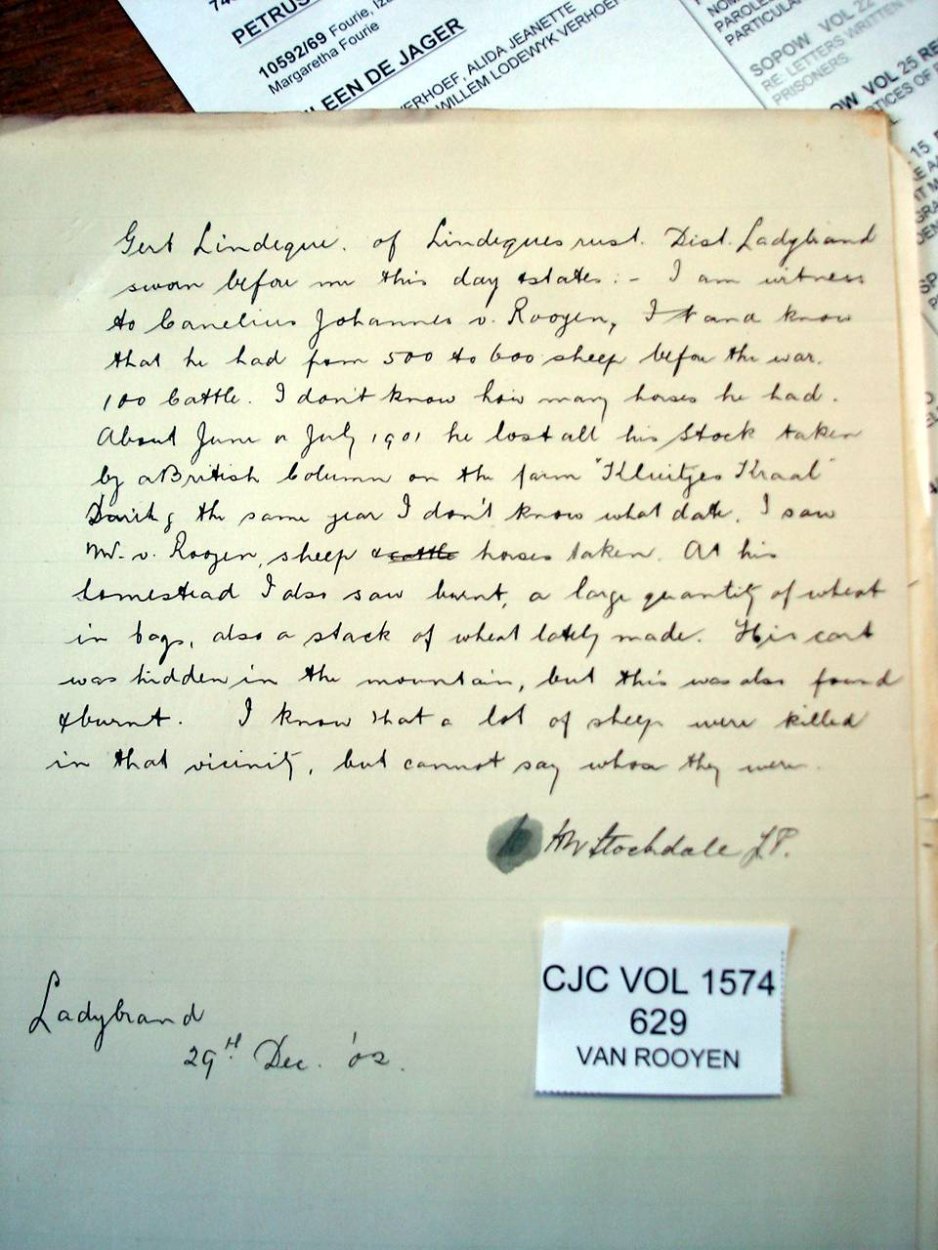 PETRUS
10592/69 Fourie, Iza
Margaretha Fourie
LEEN DE JAGER
VERHOEF, ALIDA JEANETTE
WILLEM LODEWYK VERHOEF
PAROLE
PARTICULAR
SOPOW VOL 22
RE: LETTERS WRITTEN
PRISONERS.
OW VOL 25 RE
Gert Lindeque. of Lindeques rust. Dist. Ladybrand
sworn before me this day states:- I am witness
to Canelius Johannes v. Rooyen, I and know
that he had from 500 to 600 sheep before the war.
100 Cattle. I don't know how many horses he had.
About June or July 1901 he lost all his Stock taken
by a British Column on the farm "Kluitjes Kraal"
During the same year I don't know what date, I saw
Mr. v. Rooyen, sheep & cattle horses taken. At his
homestead I also saw burnt, a large quantity of wheat
in bags, also a stack of wheat lately made. His cart
was hidden in the mountain, but this was also found
& burnt. I know that a lot of sheep were killed
in that vicinity, but cannot say whose they were.
HW Stockdale J.P.
Ladybrand
29th Dec. '02.
CJC VOL 1574
629
VAN ROOYEN